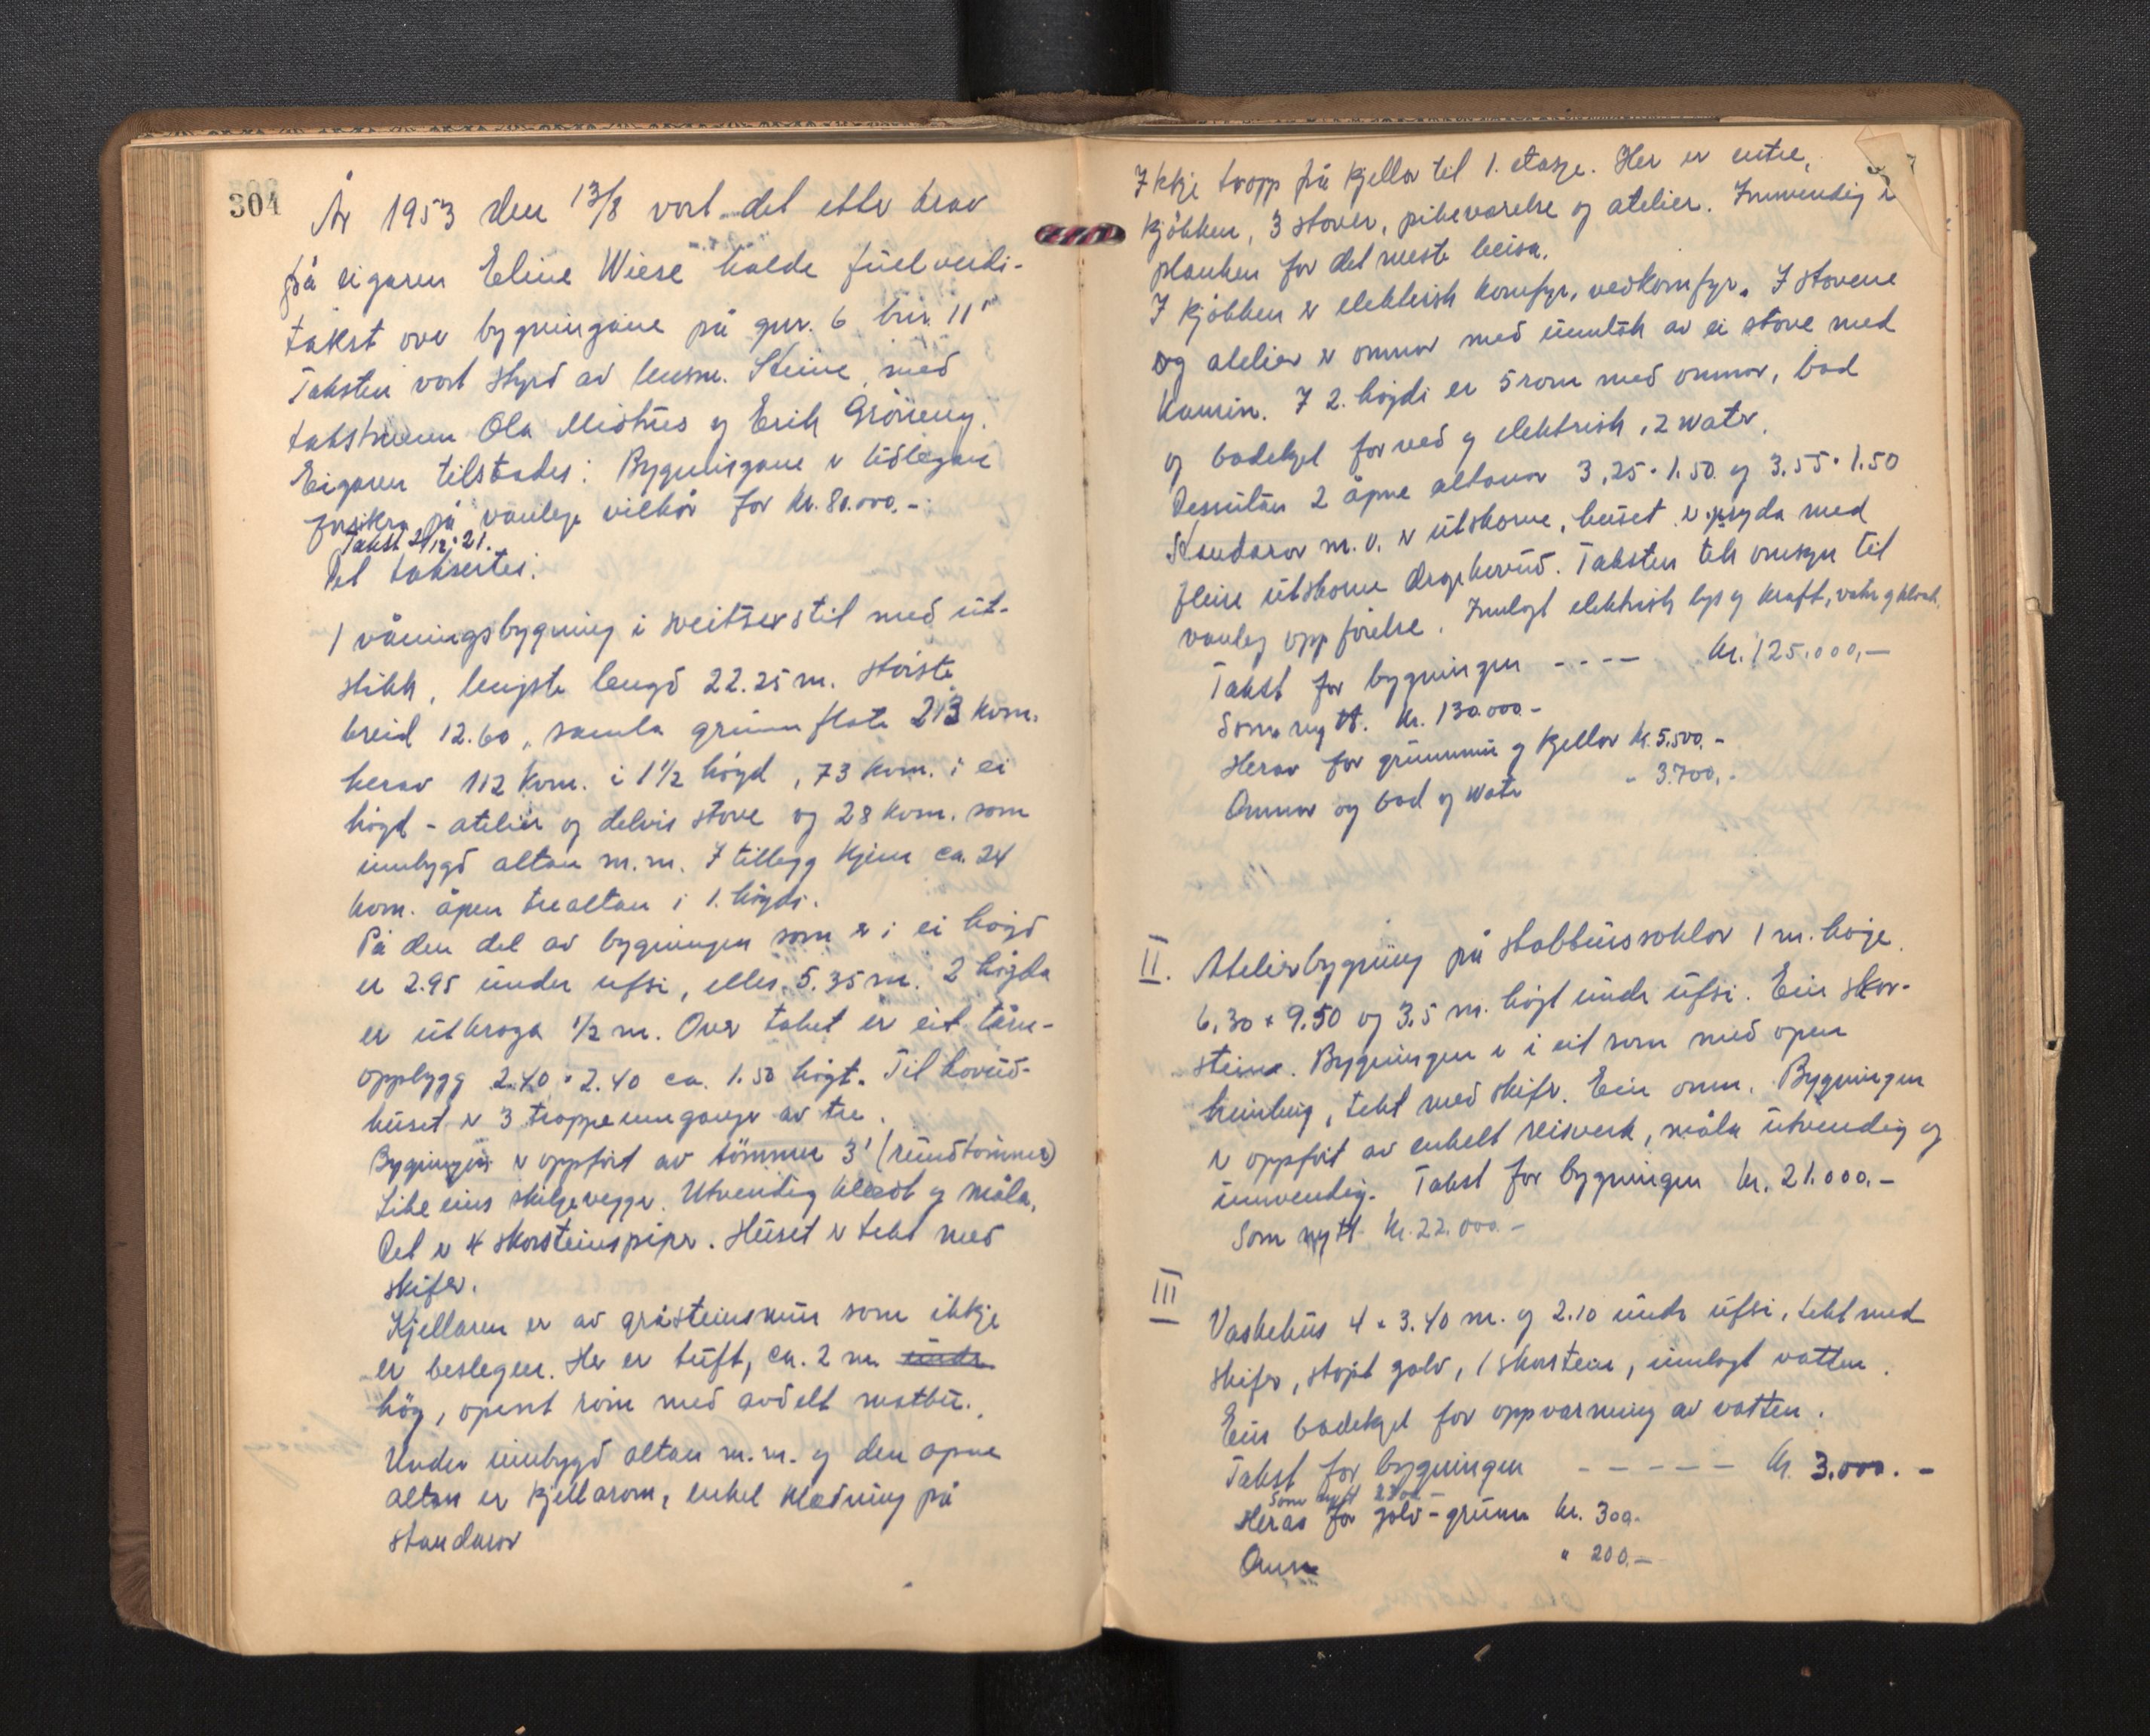 304
År 1953 den 13/8 vart det etter krav
frå eigaren Eline Wiese halde fullverdi-
takst over bygningane på gnr. 6 bnr. 11
Taksten vart styrd av lensm. Steine med
takstmenn Ola Midthus og Erik Gröneng.
Eigaren tilstades: Bygningane er tidlegare
forsikra på vanlege vilkår for kr. 80.000.-
Takst 2/12-21.
Det taksertes:
1 våningsbygning i sveitserstil med ut-
stikk, lengste lengd 22.25 m. störste
breid 12.60, samla grunnflate 213 kvm.
herav 112 kvm. i 1½ högd, 73 kvm. i ei
högd - atelier og delvis stove og 28 kvm. som
innbygd altan m.m. I tillegg kjem ca. 24
kvm. åpen trealtan i 1. högdi.
På den del av bygningen som er i ei högd
er 2.95 under ufsi, elles 5.35 m. 2 högda
er utkraga ½ m. Over taket er eit tårn-
oppbygg 2.40 × 2.40 ca. 1.50 högt. Til hovud-
huset er 3 trappeinngangar av tre.
Bygningen er oppfört av tömmer 3" (rundtömmer)
Like eins skiljevegger. Utvendig kledt og måla.
Det er 4 skorsteinspiper. Huset er tekt med
skifer.
Kjellaren er av gråsteinsmur som ikkje
er beslegen. Her er tuft, ca. 2 m. undr
hög, opent rom med avdelt matbu.
Under innbygd altan m.m. og den opne
altan er kjellarom, enkel kledning på
standarar
Ikkje tropp frå kjellar til 1. etasje. Her er entre,
kjökken, 3 stover, pikeværelse og atelier. Innvendig er
planken for det meste beisa.
I kjökken er elektrisk komfyr, vedkomfyr. I stovene
og atelier er omnar med unntak av ei stove med
kamin. I 2. högdi er 5 rom med omnar, bad
og badekjel for ved og elektrisk, 2 water.
Dessutan 2 åpne altanar 3,25 × 1.50 og 3.55 × 1.50
Standarar m.v. er utskorne, huset er pryda med
fleire utskorne dragehovud. Taksten tek omsyn til
vanleg oppförelse. Innlagt elektrisk lys og kraft, vatn og kloakk.
Takst for bygningen ---- kr. 125.000,-
Som nytt. kr. 130.000.-
Herav for grunnmur og kjellar kr. 5.500.-
Omnar og bad og water " 3.700.-
II. Atelierbygning på stabbursstoklar 1 m. höge.
6.30 × 9.50 og 3.5 m. högt under ufsi. Ein skor-
stein. Bygningen er i eit rom med open
himling, tekt med skifer. Ein omn. Bygningen
er oppfört av enkelt reisverk, måla utvendig og
innvendig. Takst for bygningen kr. 21.000.-
Som nytt kr. 22.000.-
III
Vaskehus 4 × 3.40 m. og 2.10 under ufsi, tekt med
skifer, stöpt golv, 1 skorstein, innlagt vatten.
Ein badekjel for oppvarming av vatten.
Takst for bygningen ----- kr. 3.000.-
Som nytt
Herav for golv - grunn kr. 300.
Omn " 200.-